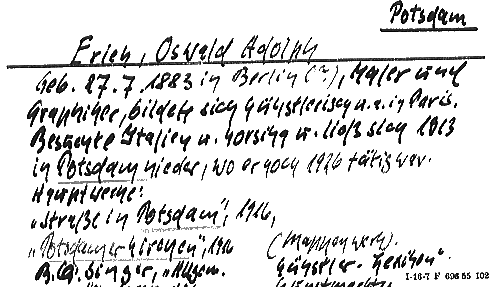 Potsdam
Erich, Oswald Adolph
Geb. 27.7.1883 in Berlin (?), Maler und
Graphiker, bildete sich künstlerisch u.a. in Paris.
Besuchte Italien u. u. ließ sich 1913
in Potsdam nieder, wo er noch 1926 tätig war.
Hauptwerke:
"Straße in Potsdam", 1916,
"Potsdamer Kirchen", 1916 (Mappenwerk).
B.: Singer, "Allgem. Künstler-Lexikon".
I-16-7 F 696 55 102